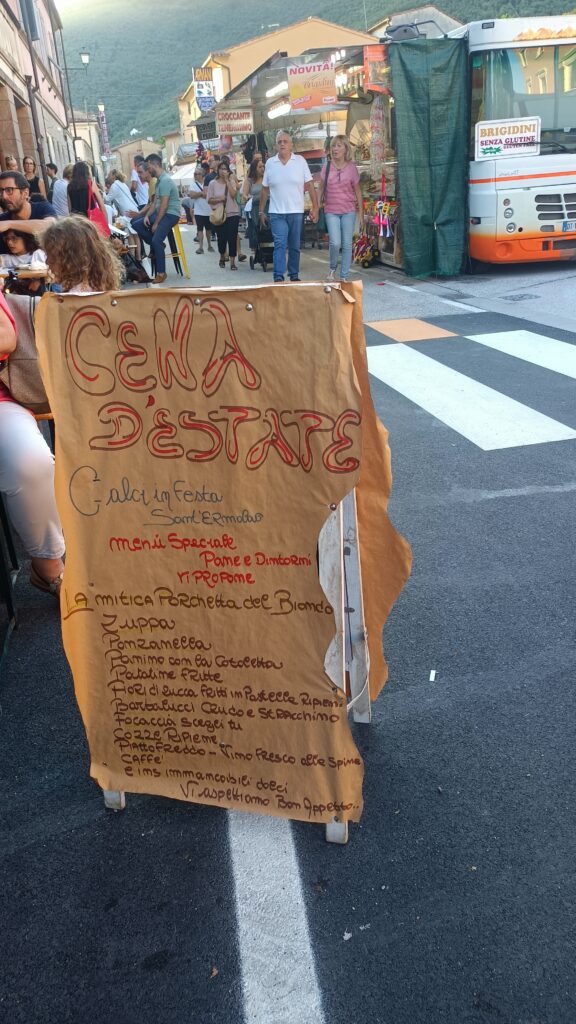 NOVITÀ!
Brigidini
CROCCANTE
TENERISSIMO
BRIGIDINI
SENZA GLUTINE
GLUTEN FREE
CENA
D'ESTATE
Calci in Festa
Sant'Ermolao
menù Speciale
Pane e Dintorni
Vi PROPONE
LA mitica Porchetta del Biondo
Zuppa
Panzanella
Panino con la Cotoletta
Patatine fritte
Fiori di zucca fritti in Pastella Ripieni
Barbalucci Crudo e STRACCHINO
Focaccia scegli tu
Cozze Ripiene
PiattoFreddo - Vino Fresco alla Spina
CAFFE'
e i ns immancabili dolci
Vi aspettiamo Bon Appetito..